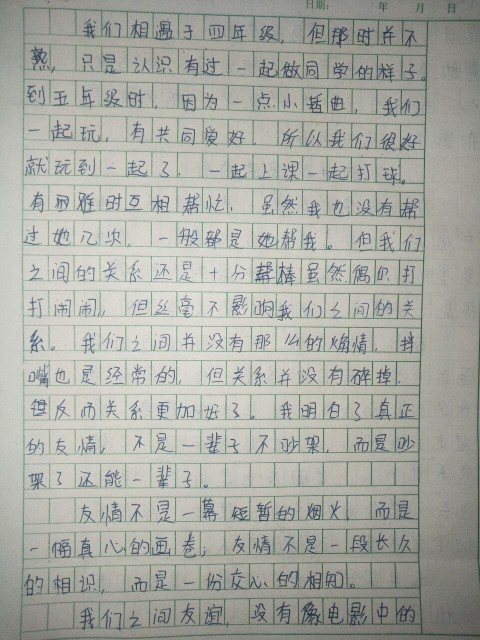 日期: 年 月 日
我们相遇于四年级，但那时并不
熟，只是认识有过一起做同学的样子。
到五年级时，因为一点小插曲，我们
一起玩，有共同爱好，所以我们很好
就玩到一起了，一起上课一起打球。
有困难时互相帮忙，虽然我也没有帮
过她几次，一般都是她帮我。但我们
之间的关系还是十分棒虽然偶尔打
打闹闹，但丝毫不影响我们之间的关
系。我们之间并没有那么的煽情，拌
嘴也是经常的，但关系并没有碎掉，
反而关系更加好了。我明白了真正
的友情，不是一辈子不吵架，而是吵
架了还能一辈子。
友情不是一幕短暂的烟火，而是
一幅真心的画卷；友情不是一段长久
的相识，而是一份交心的相知。
我们之间友谊，没有像电影中的